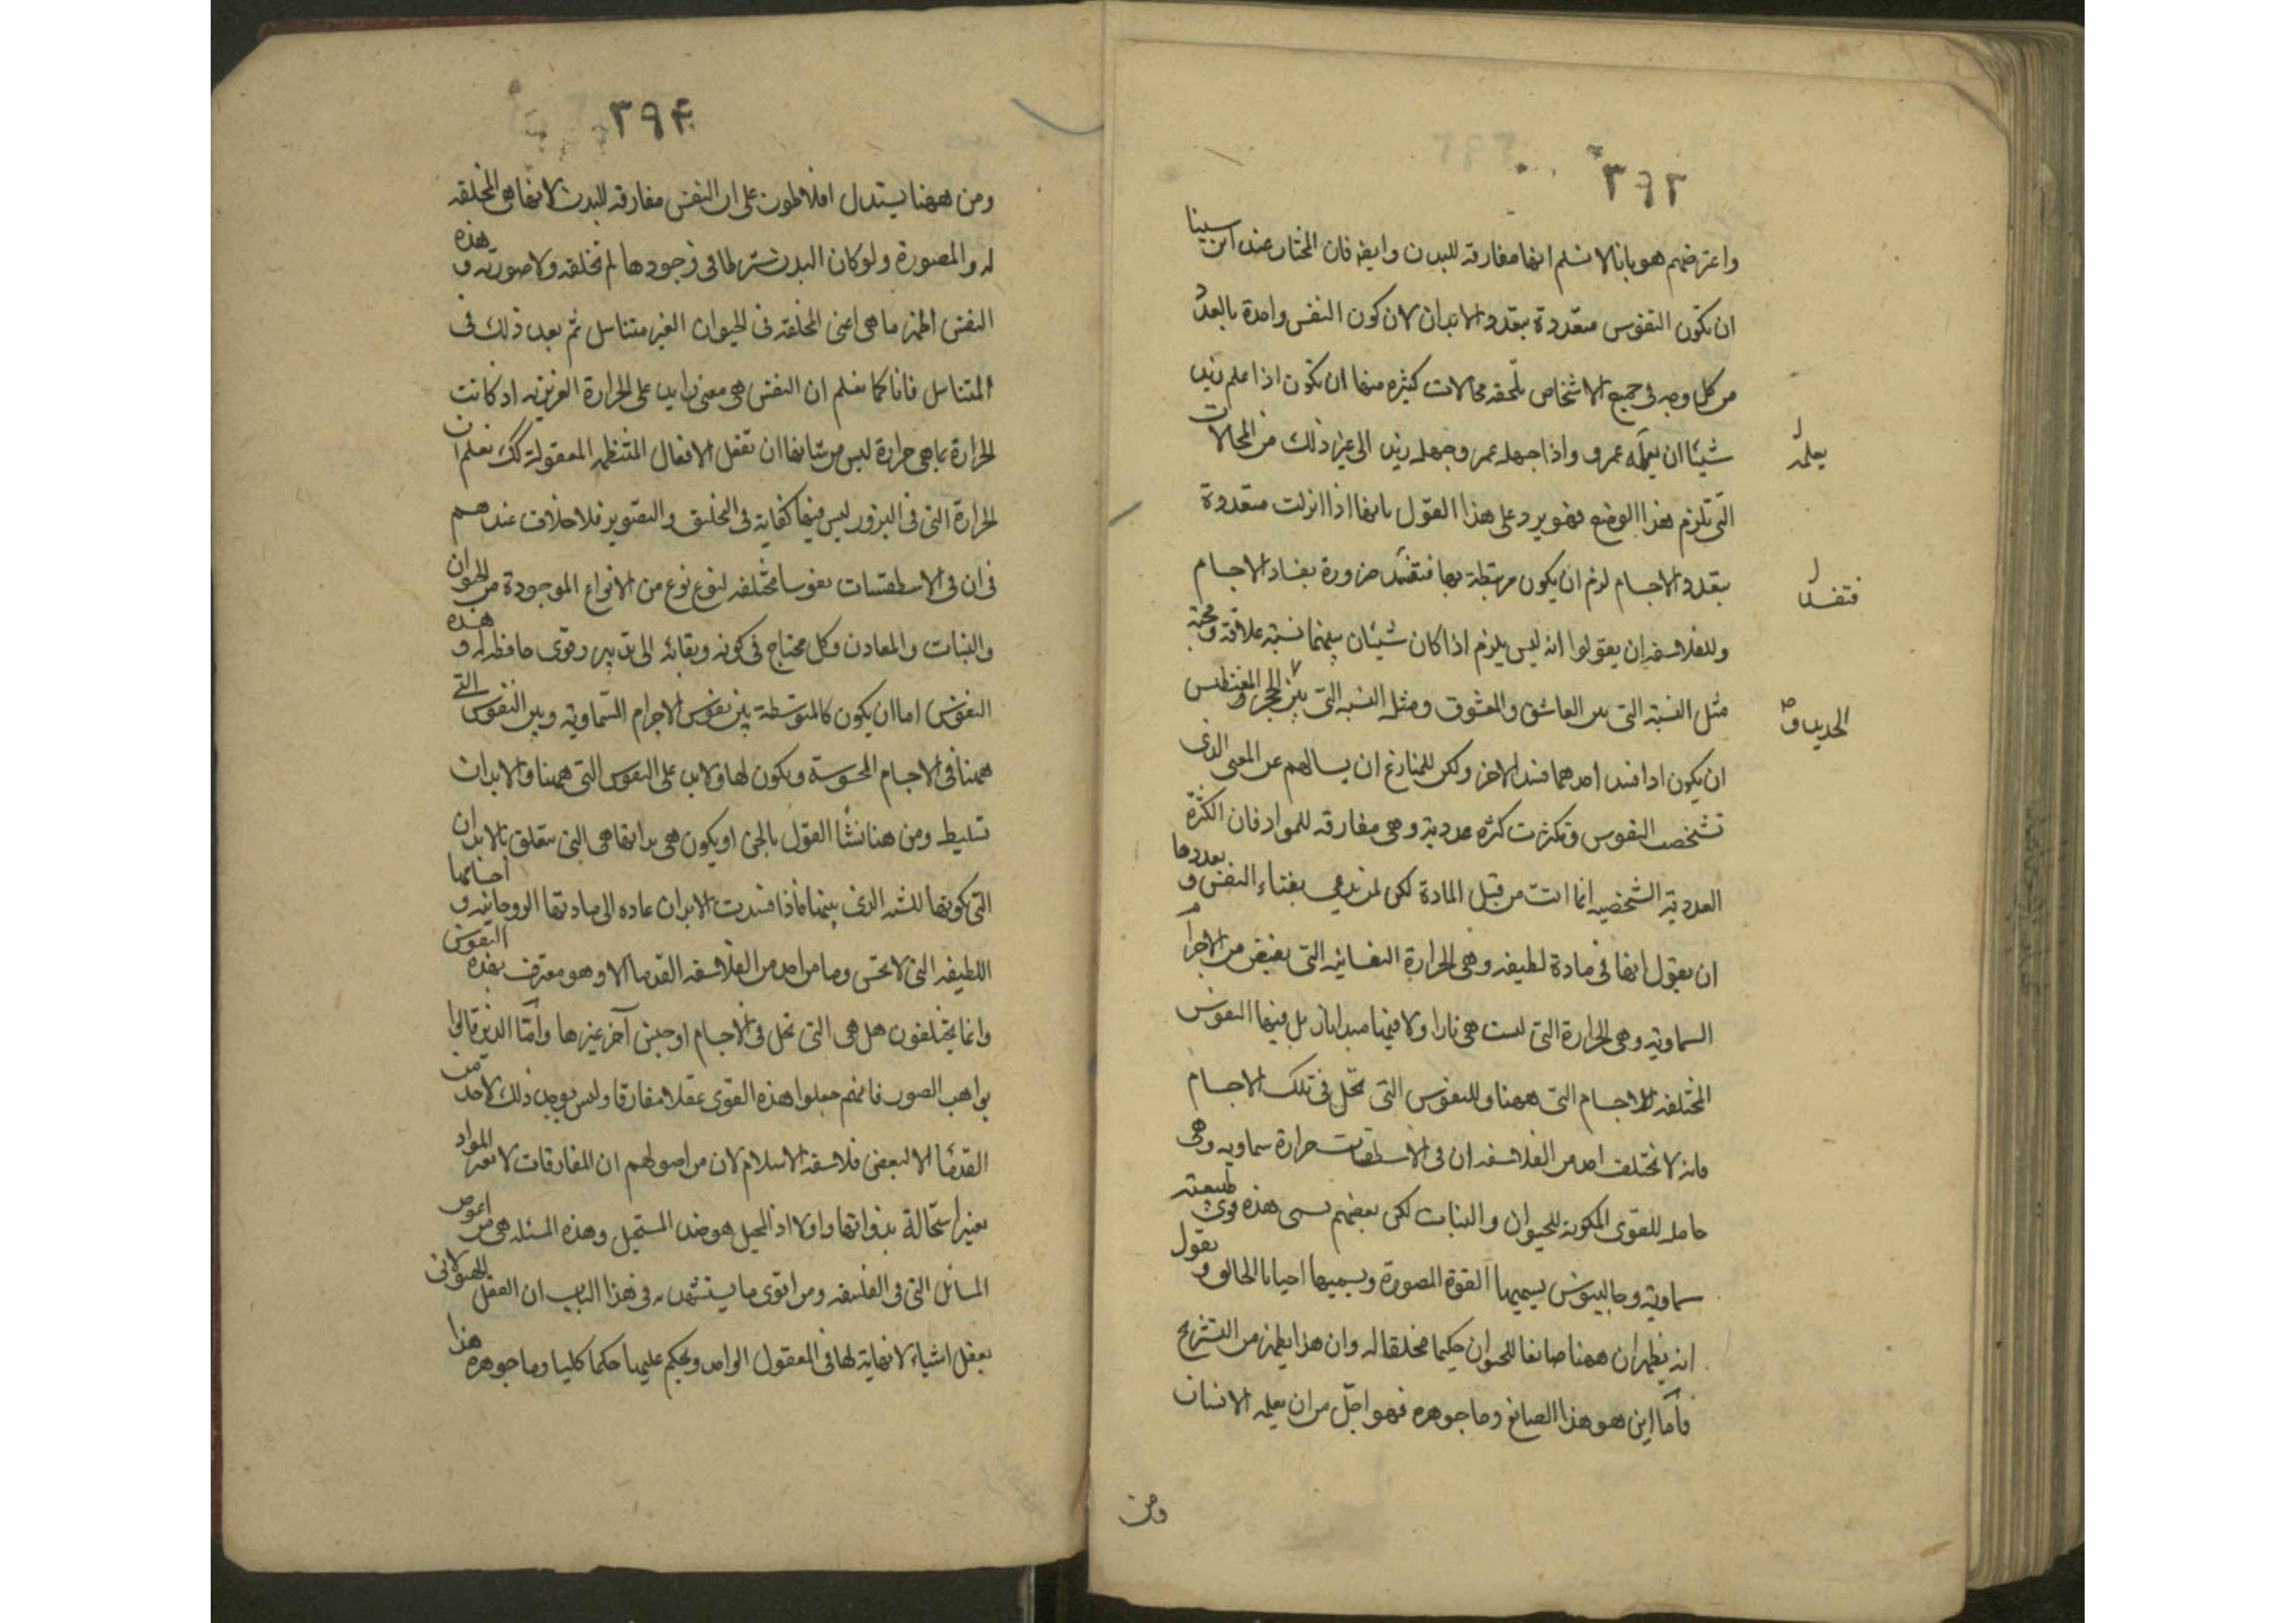 ٣٩٣
واعترضهم هو بانا لا نسلم انها مفارقة للبدن وايضا فان المختار عند ابن سينا
ان تكون النفوس متعددة بتعدد الابدان لان كون النفس واحدة بالعدد
من كل وجه فى جميع الاشخاص تلحقه محالات كثيره منها ان تكون اذا علم زيد
شيئا ان يعلمه عمرو واذا جهله عمرو جهله زيد الى غير ذلك من المحالات
يعلمه
التى تلزم هذا الوضع فهو يرد على هذا القول بانها اذا انزلت متعددة
بتعدد الاجسام لزم ان يكون مرتبطة بها فتفسد ضرورة بفساد الاجسام
فتفسد
وللفلاسفة ان يقولوا انه ليس يلزم اذا كان شيئان بينهما نسبة علاقة ومحبة
مثل النسبة التى بين العاشق والمعشوق ومثل النسبه التى بين الحجر المغنطيس
الحديد و
ان يكون اذا فسد احدهما فسد الاخر ولكن للمنازع ان يسالهم عن المعنى الذى
تشخصت النفوس وتكثرت كثرة عددية وهى مفارقه للمواد فان الكثرة
العددية الشخصيه انما اتت من قبل المادة لكن لمن يدعى بقاء النفس وتعددها
ان يقول انها فى مادة لطيفه وهى الحرارة النفسانيه التى تفيض من الاجرام
السماوية وهى الحرارة التى ليست هى نارا ولا فيها مبدا نار بل فيها النفوس
المختلفه للاجسام التى ههنا وللنفوس التى تحل فى تلك الاجسام
فانه لا يختلف احد من الفلاسفه ان فى الاسطقسات حرارة سماويه وهى
حامله للقوى المكونة للحيوان والنبات لكن بعضهم يسمى هذه قوى طبيعته
سماوية وجالينوس يسميها القوة المصورة ويسميها احيانا الخالق ويقول
انه يظهر ان ههنا صانعا للحيوان حكيما مخلقا له وان هذا يظهر من التشريح
فأما اين هو هذا الصانع وما جوهره فهو اجلّ من ان يعلمه الانسان
ومن
٣٩۴
ومن ههنا يستدل افلاطون على ان النفس مفارقه للبدن لانها هى المخلقه
له والمصورة ولو كان البدن شرطا فى وجودها لم تخلقه ولا صورته وهذه
النفس اظهر ما هى اعنى المخلقه فى الحيوان الغير متناسل ثم بعد ذلك فى
المتناسل فانا كما نعلم ان النفس هى معنى زايد على الحرارة الغريزيه اذ كانت
الحرارة بما هى حرارة ليس من شانها ان تفعل الافعال المنتظمه المعقولة كك نعلم ان
الحرارة التى فى البزور ليس فيها كفاية فى التخليق والتصوير فلا خلاف عندهم
فى ان فى الاسطقسات نفوسا مختلفه لنوع نوع من الانواع الموجودة من الحيوان
والنبات والمعادن وكل محتاج فى كونه وبقائه الى تدبير وقوى حافظه له وهذه
النفوس اما ان يكون كالمتوسطة بين نفوس الاجرام السّماوية وبين النفوس التى
ههنا فى الاجسام المحسوسة ويكون لها ولا بد على النفوس التى ههنا والابدان
تسليط ومن هنا نشأ القول بالجن او يكون هى بذاتها هى التى تتعلق بالابدان
التى تكونها للشبه الذى بينهما فاذا فسدت الابدان عادة الى مادتها الروحانيه واجسامها
اللطيفه التى لا تحس وما من احد من الفلاسفه القدما الا وهو معترف بهذه النفوس
وانما يختلفون هل هى التى تحل فى الاجسام او جنس آخر غيرها وأمّا الذين قالوا
بواهب الصور فانهم جعلوا هذه القوى عقلا مفارقا وليس يوجد ذلك لاحد من
القدما الا لبعض فلاسفه الاسلام لان من اصولهم ان المفارقات لا تغير المواد
تغير استحالة بذواتها واولا اذ المحيل هو ضد المستحيل وهذه المسئله هى من اغوص
المسائل التى فى الفلسفه ومن اقوى ما يستشهد به فى هذا الباب ان العقل الهيولانى
يعقل اشياء لا نهاية لها فى المعقول الواحد ويحكم عليها حكما كليا وما جوهره هذا